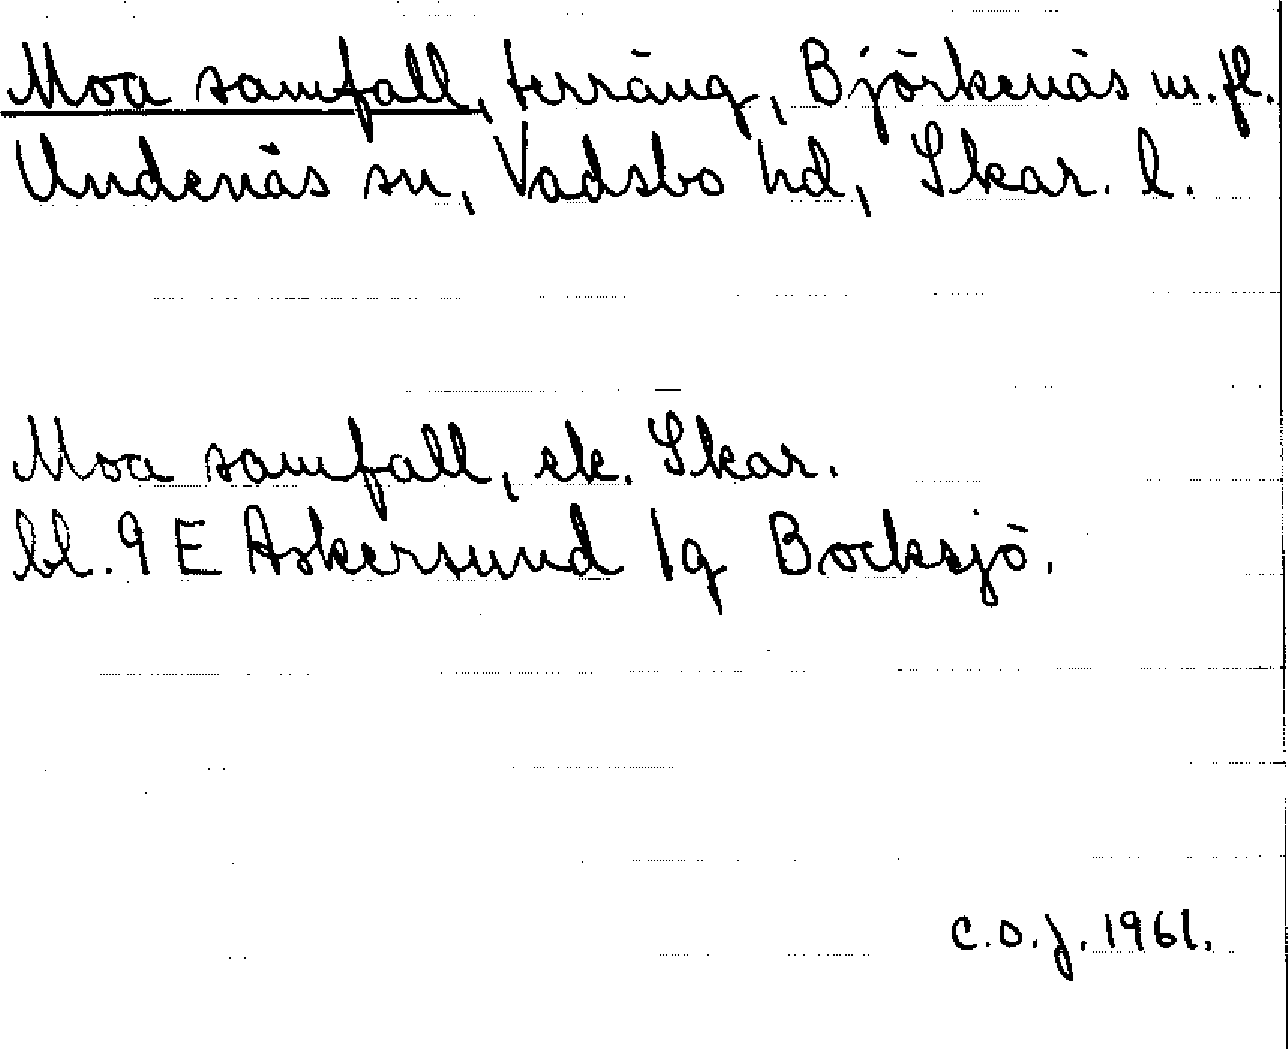 Moa samfall, terräng, Björkenäs m.fl.
Undenäs sn, Vadsbo hd, Skar. l.
Moa samfall, ek. Skar.
bl. 9 E Askersund 1g Bocksjö.
C.O.J. 1961.